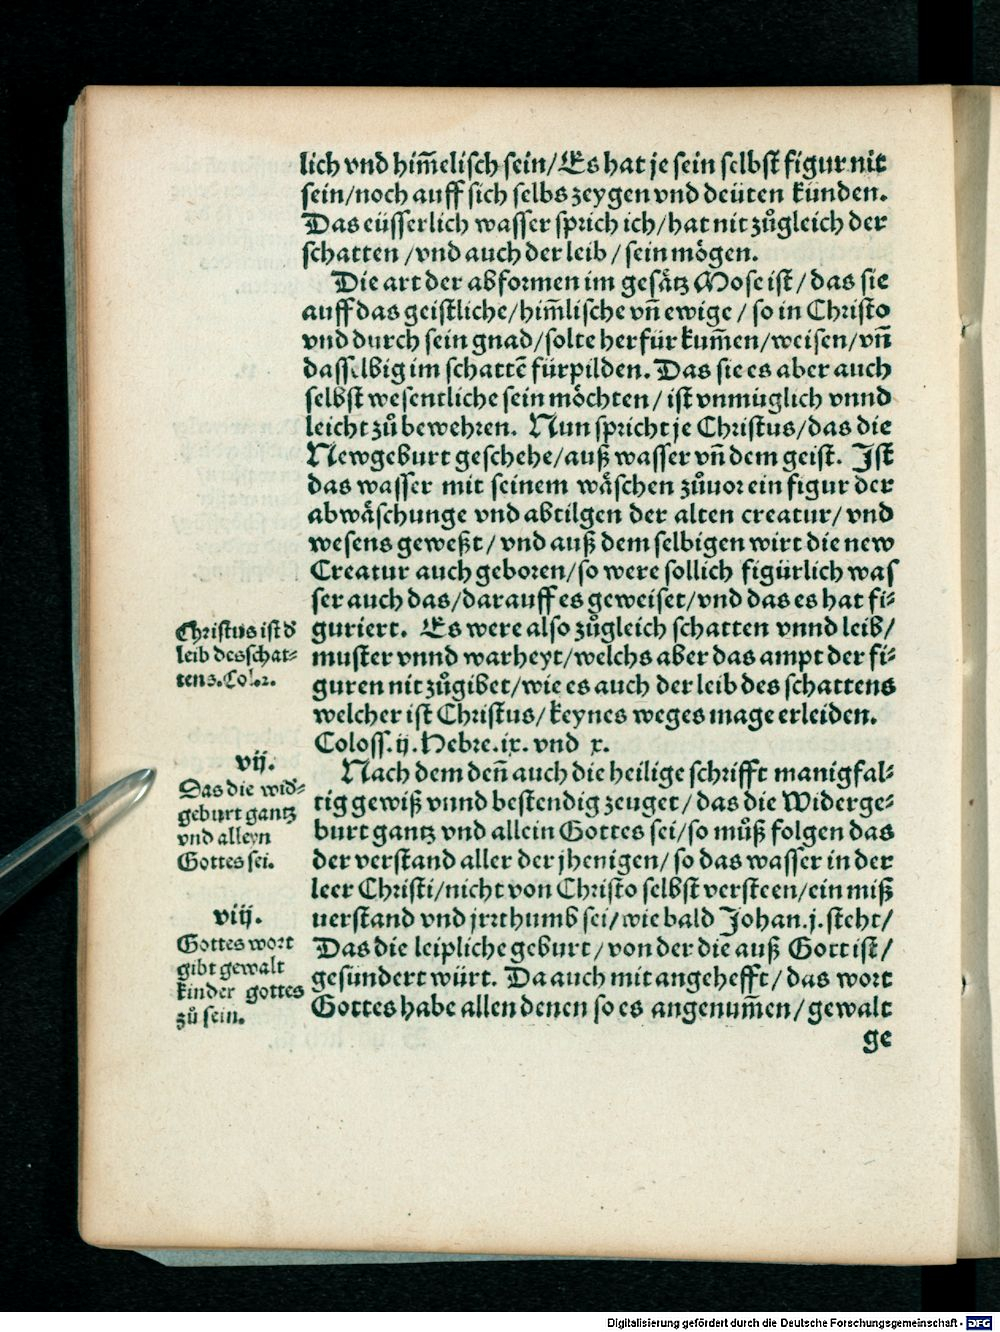 lich vnd him̄elisch sein/Es hat je sein selbst figur nit
sein/noch auff sich selbs zeygen vnd deüten künden.
Das eüsserlich wasser sprich ich/hat nit zůgleich der
schatten /vnd auch der leib / sein mögen.
Die art der abformen im gesätz Mose ist/ das sie
auff das geistliche/him̄lische vn̄ ewige / so in Christo
vnd durch sein gnad/solte herfür kum̄en/weisen/vn̄
dasselbig im schattē fürpilden. Das sie es aber auch
selbst wesentliche sein möchten/ ist vnmüglich vnnd
leicht zů bewehren. Nun spricht je Christus/das die
Newgeburt geschehe/auß wasser vn̄ dem geist. Ist
das wasser mit seinem wäschen zůuor ein figur der
abwäschunge vnd abtilgen der alten creatur/ vnd
wesens geweßt/ vnd auß dem selbigen wirt die new
Creatur auch geboren/so were sollich figürlich was
ser auch das/darauff es geweiset/vnd das es hat fi⸗
guriert. Es were also zůgleich schatten vnnd leib/
muster vnnd warheyt/welchs aber das ampt der fi⸗
guren nit zůgibet/wie es auch der leib des schattens
welcher ist Christus/keynes weges mage erleiden.
Coloss.ij.Hebre.ix. vnd x.
Christus ist d'
leib des schat⸗
tens.Col.2.
Nach dem den̄ auch die heilige schrifft manigfal⸗
tig gewiß vnnd bestendig zeuget/das die Widerge⸗
burt gantz vnd allein Gottes sei/so můß folgen das
der verstand aller der jhenigen/ so das wasser in der
leer Christi/nicht von Christo selbst versteen/ein miß
uerstand vnd jrrthumb sei/wie bald Johan.j.steht/
Das die leipliche geburt/von der die auß Gott ist/
gesündert würt. Da auch mit angehefft/ das wort
Gottes habe allen denen so es angenum̄en/gewalt
ge
vij.
Das die wid'⸗
geburt gantz
vnd alleyn
Gottes sei.
viij.
Gottes wort
gibt gewalt
kinder gottes
zů sein.
Digitalisierung gefördert durch die Deutsche Forschungsgemeinschaft - DFG